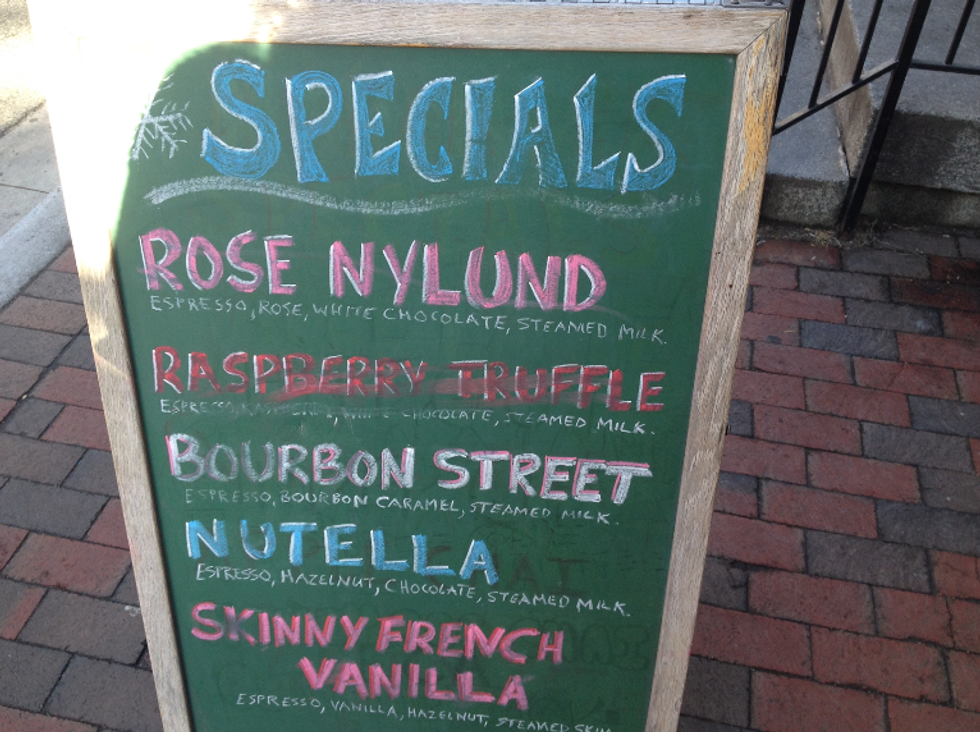 SPECIALS
ROSE NYLUND
ESPRESSO, ROSE, WHITE CHOCOLATE, STEAMED MILK.
RASPBERRY TRUFFLE
ESPRESSO, RASPBERRY, WHITE CHOCOLATE, STEAMED MILK.
BOURBON STREET
ESPRESSO, BOURBON CARAMEL, STEAMED MILK.
NUTELLA
ESPRESSO, HAZELNUT, CHOCOLATE, STEAMED MILK.
SKINNY FRENCH
VANILLA
ESPRESSO, VANILLA, HAZELNUT, STEAMED